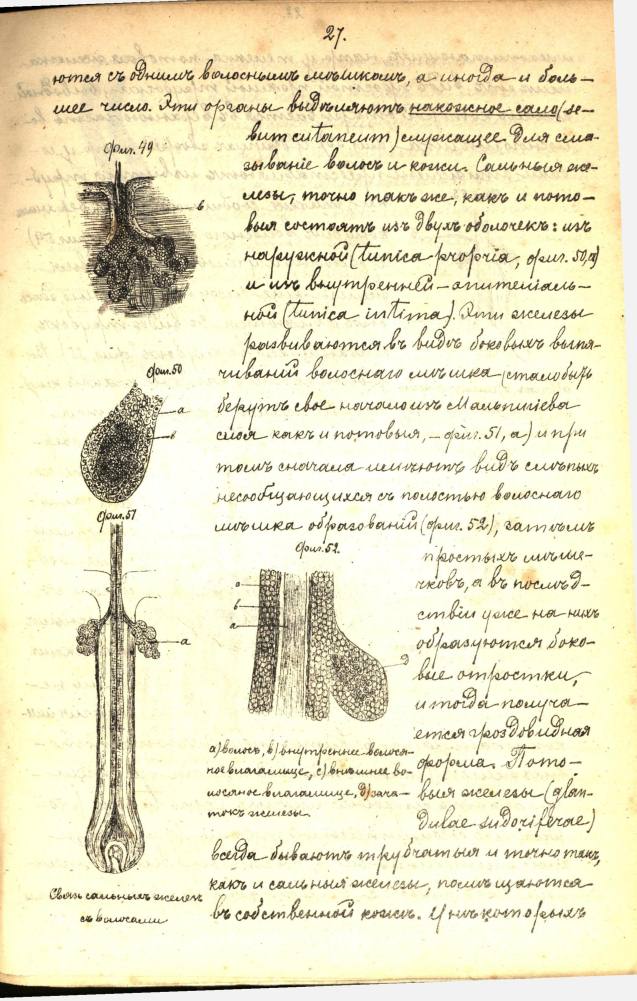 27.
ются съ однимъ волоснымъ мѣшкомъ, а иногда и боль-
шее число. Эти органы выдѣляютъ накожное сало (se-
bum cutaneum) служащее для сма-
зыванiе волосъ и кожи. Сальныя же-
лезы, точно такъ же, какъ и пото-
выя состоятъ изъ двухъ оболочекъ: изъ
наружной (tunica propria, фиг. 50, а)
и изъ внутренней – эпителiаль-
ной (tunica intima). Эти железы
развиваются въ видѣ боковыхъ выпя-
чиванiй волоснаго мѣшка (стало быть
берутъ свое начало изъ Мальпигiева
слоя какъ и потовыя, – фиг. 51, а) и при
томъ сначала имѣютъ видъ слѣпыхъ
несообщающихся съ полостью волоснаго
мѣшка образованiй (фиг. 52), затѣмъ
простыхъ мѣше-
чковъ, а въ послѣд-
ствiи уже на нихъ
образуются боко-
вые отростки,
и тогда получа-
ется гроздовидная
форма. Пото-
выя железы (glan-
dulae sudoriferae)
всегда бываютъ трубчатыя и точно такъ,
какъ и сальныя железы, помѣщаются
въ собственной кожѣ. У нѣкоторыхъ
фиг. 49
в
фиг. 50
а
в
фиг. 51
а
Связь сальныхъ железъ
съ волосами
фиг. 52.
с
в
а
д
а) волосъ, в) внутреннее волося-
ное влагалище, с) внѣшнее во-
лосяное влагалище, д) зача-
токъ железы.